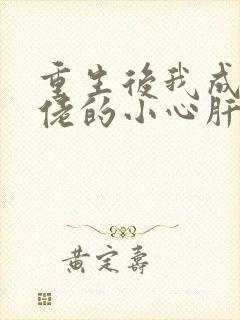 重生後我成
佬的小心肝
黄定壽